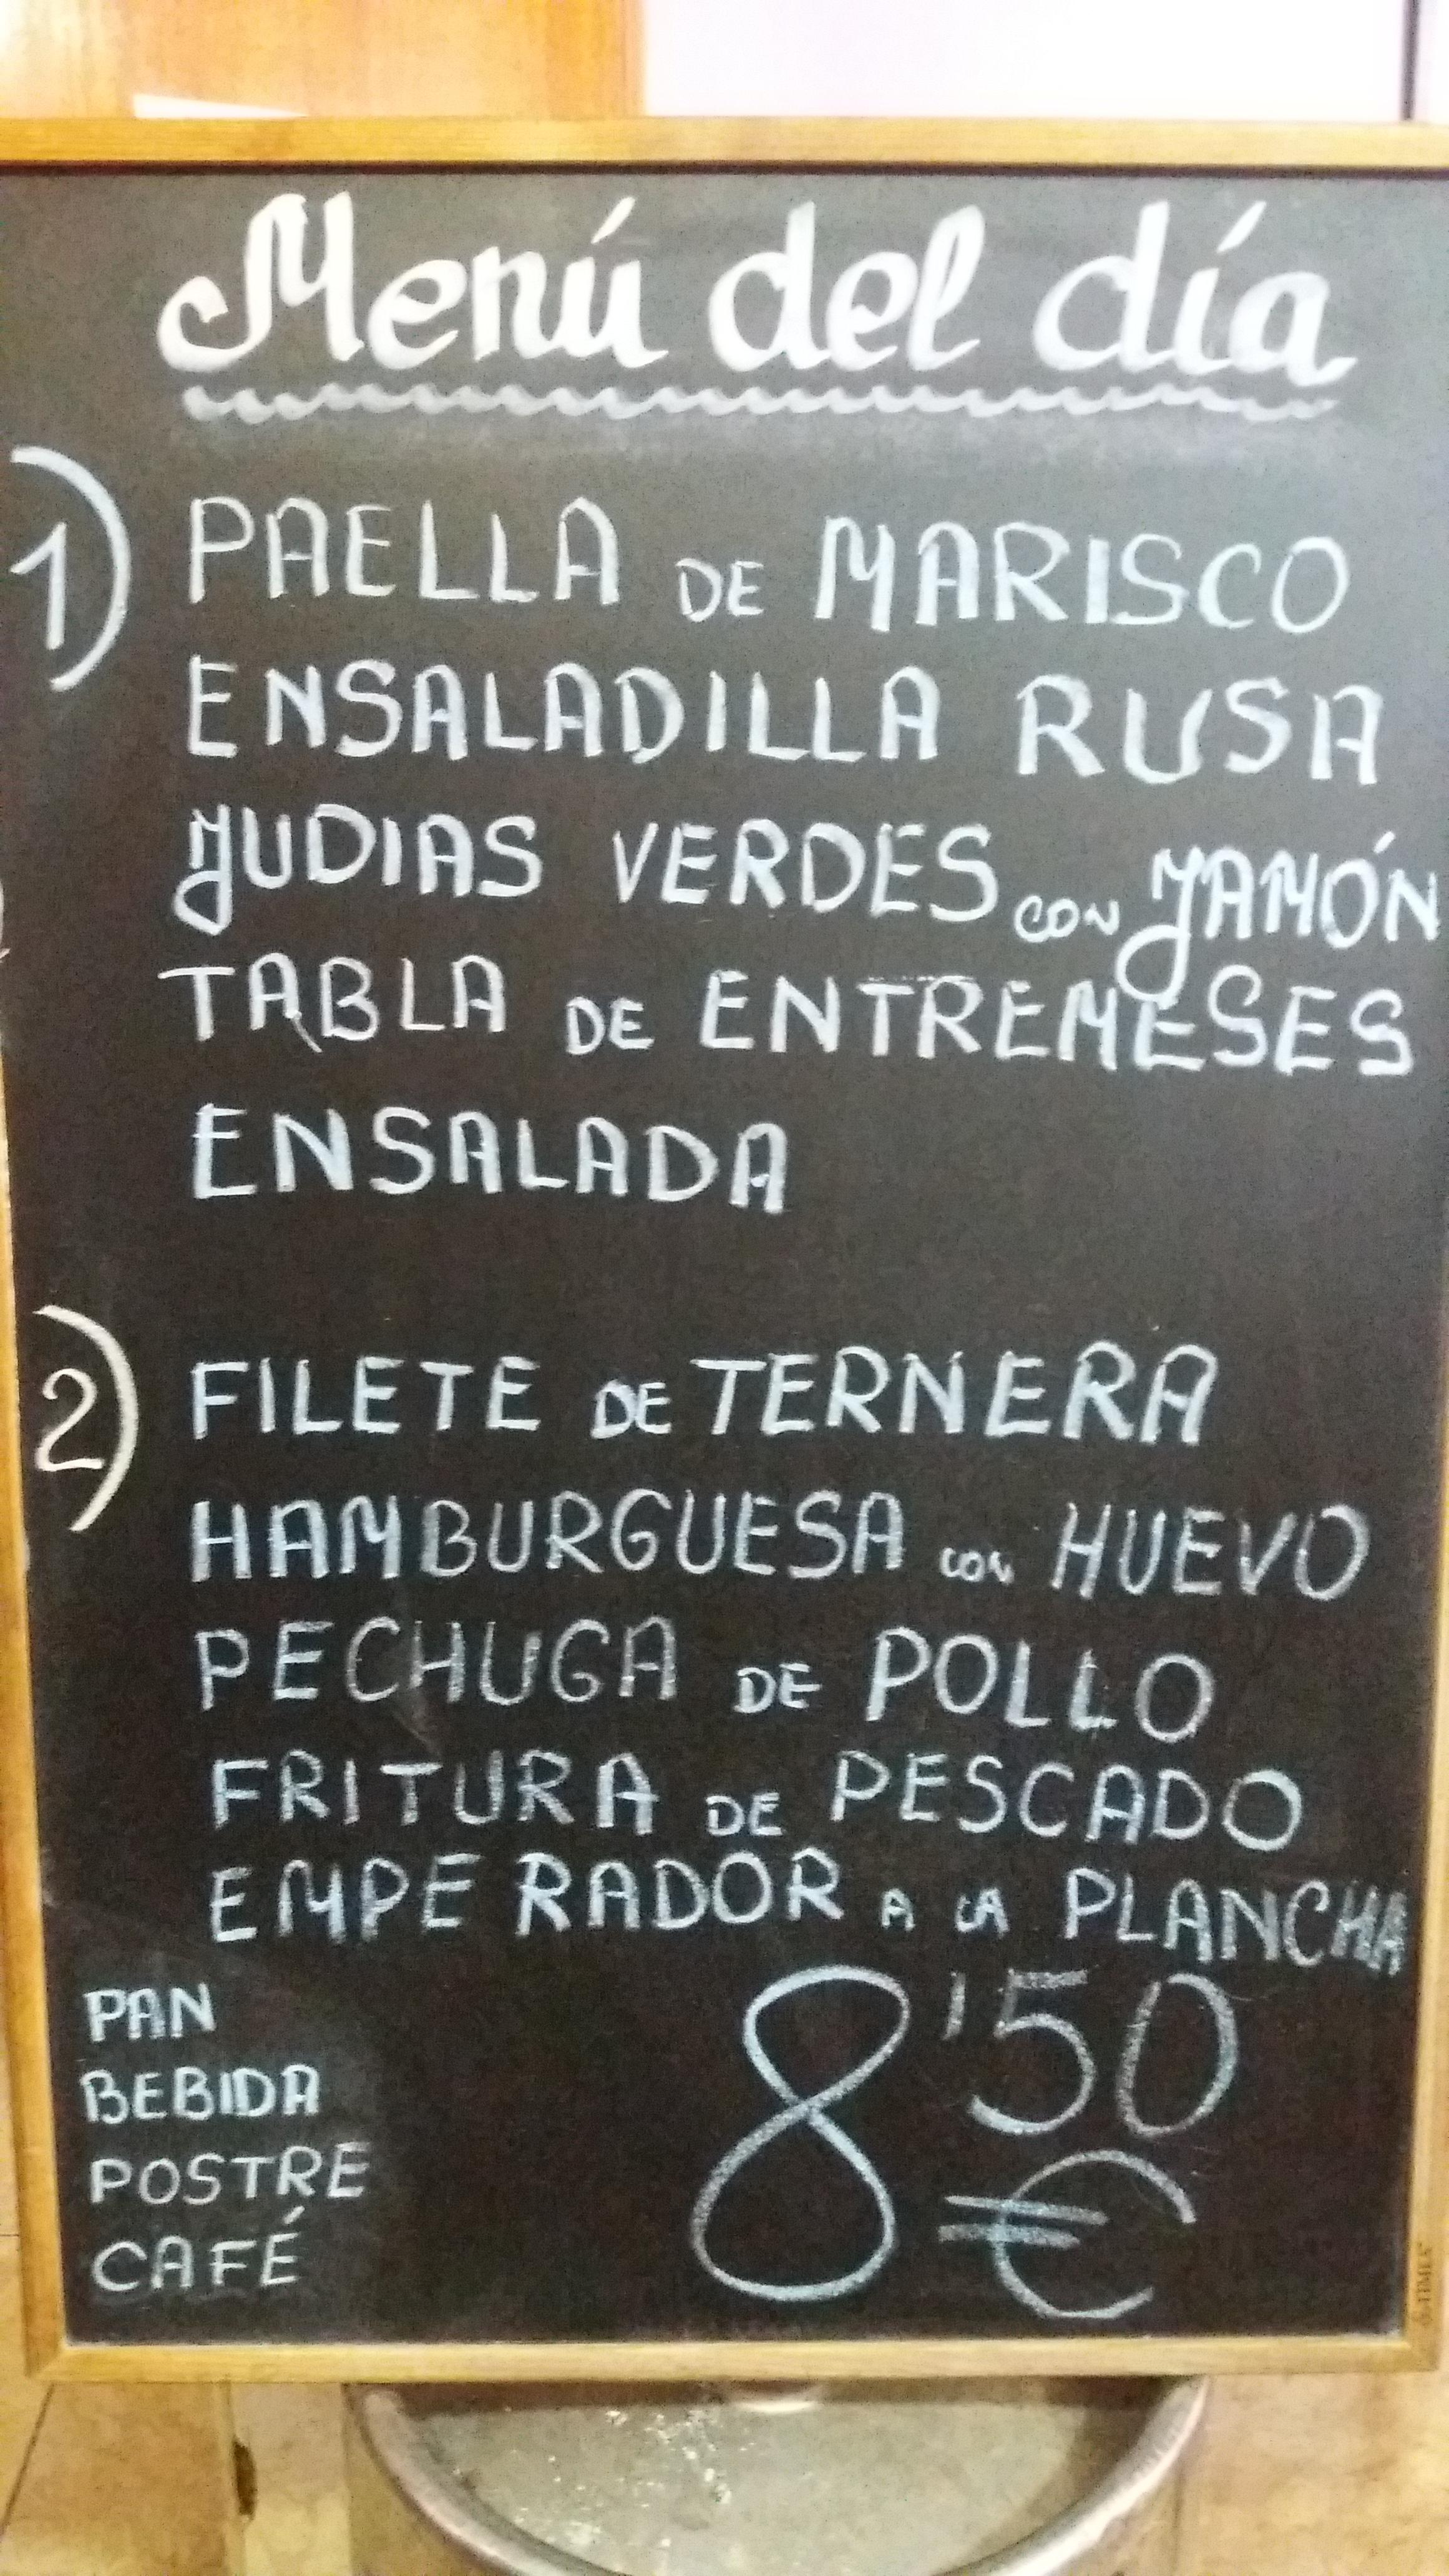 Menú del día
1) PAELLA DE MARISCO
ENSALADILLA RUSA
JUDIAS VERDES CON JAMÓN
TABLA DE ENTREMESES
ENSALADA
2) FILETE DE TERNERA
HAMBURGUESA CON HUEVO
PECHUGA DE POLLO
FRITURA DE PESCADO
EMPERADOR A LA PLANCHA
PAN
BEBIDA
POSTRE
CAFÉ
8'50 €